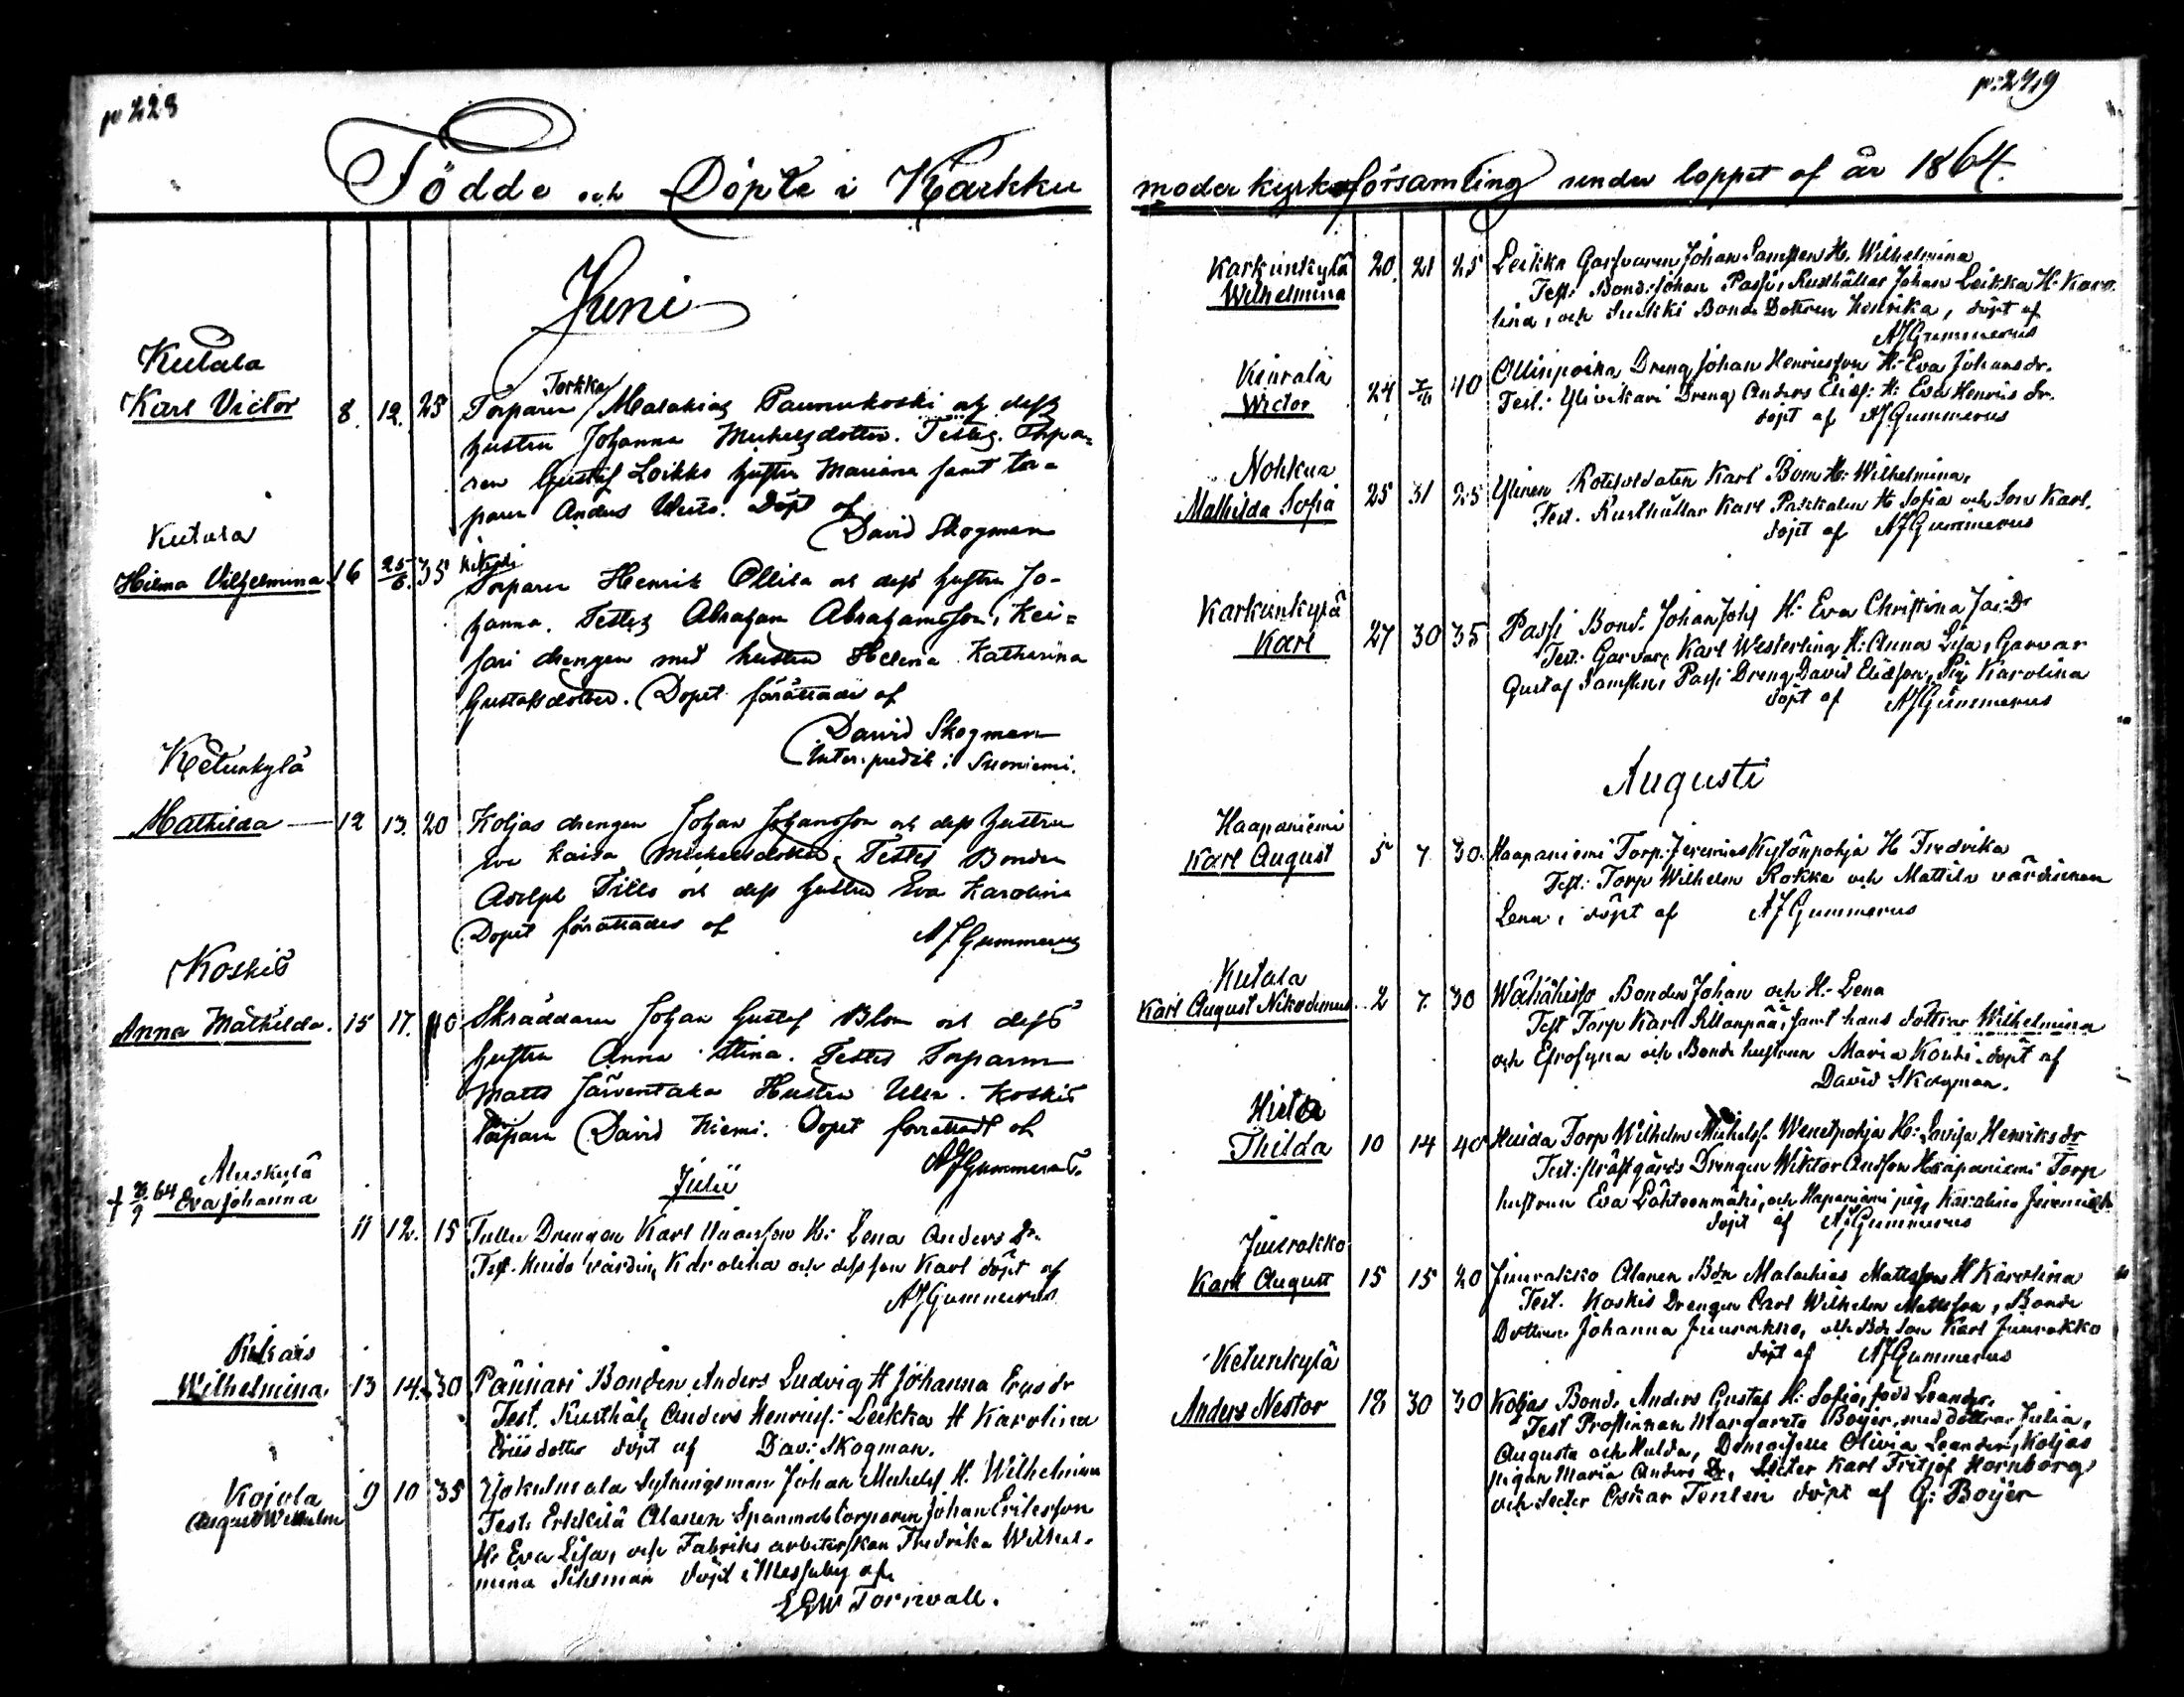 p 228
Födde och Döpte i Karkku
Juni
Kutala
Karl Victor 8. 12. 25 Torparen Torkko Malakias Paununkoski och dess
hustru Johanna Michelsdotter. Testes. Torpa-
ren Gustaf Loikko hustru Mariana samt tor-
paren Anders Döpt af
David Skogman
Kutala
Hilma Vilhelmina 16 25/6. 35 Torparen Henrik Ollila och dess hustru Jo-
hanna. Testes Abraham Abrahamsson, Kei-
sari drengen med hustru Helena Katharina
Gustafsdotter. Dopet förättade af
David Skogman
Inter. predik: i Suoniemi.
Ketunkylä
Mathilda 12 13. 20 Koljas drengen Johan Johansson och dess hustru
Eva Kaisa Michelsdotter. Testes Bonden
Adolph Tills och dess hustru Eva Karolina
Dopet förättades af AJ Gummerus
Koskis
Anna Mathilda. 15 17. 40 Skräddaren Johan Gustaf Blom och dess
hustru Anna Stina. Testes Torparen
Matts Järventaka Hustru Ulla. Koskis
Torparen David Niemi. Dopet förrättadt af
AJ Gummerus.
Julii
Aluskylä
Eva Johanna
11 12. 15 Tullu Drengen Karl H: Lena Anders dr.
Test. Huida värdin Karolina och dess son Karl döpt af
AJ Gummerus
Wilhelmina. 13 14. 30 Pännäri Bonden Anders Ludvig H Johanna Ericsdr
Test. Rusthål Anders Henricss: Leikka H Karolina
Ericsdotter döpt af Dav: Skogman.
Kojola
August Wilhelm 9 10 35 Sytningsman Johan Michelss H. Wilhelmina
Test: Erkkilä Alanen Spanmålstorparen Johan Ericsson
H: Eva Lisa, och Fabriks arbeterskan Fredrika Wilhel-
mina döpt i Messuby af
LEW Tornvall.
p: 229
moderkyrkoförsamling under loppet af år 1864.
Karkunkylä 20. 21 25 Leikka Garfvaren Johan Samsten H. Wilhelmina
Wilhelmina Test: Bond: Johan Passi, Rusthållar Johan Leikka H. Karo-
lina, och Bonde Dottren Henrika, döpt af
AJ Gummerus
Kiurala 24 40 Ollinpoika Dreng Johan Henricsson H: Eva Johansdr.
Wictor Test: Ylivikari Dreng Anders Eliass: H: Eva Henrics dr.
döpt af AJ Gummerus
Nohkua
Mathilda Sofia 25 31 25 Ylinen Rotesoldaten Karl Bom H: Wilhelmina,
Test. Rusthållar Karl H Sofia och Son Karl.
döpt af AJ Gummerus
Karkunkylä
Karl 27 30 35 Passi Bond. Johan Johs H: Eva Christina Jac: Dr
Test: Garvar Karl Westerling H: Anna Lisa, Garvar
Gustaf Samsten, Passi Dreng David Eliasson, Pig Karolina
döpt af AJ Gummerus
Augusti
Haapaniemi
Karl August 5 7 30. Haapaniemi Torp. Jeremias Kytönpohja H Fredrika
Test: Torp Wilhelm Rokka och Mattila värdinnan
Lena, döpt af AJ Gummerus
Kutala
Karl August Nikodemus. 2 7. 30 Wähähiisto Bonden Johan och H:- Lena
Test Torp Karl Sillanpää, samt hans dottrar Wilhelmina
och Efrosyna och Bonde hustrun Maria Konti. döpt af
David Skogman.
Thilda 10 14 40 Huida Torp Wilhelm Michelss. Wenetpohja H: Lovisa Henriksdr
Test: Prästgårds Drengen Wiktor Andsson Haapaniemi Torp
hustrun Eva Lähteenmäki, och Hapaniemi pig Karolina Jeremiedr
döpt af AJ Gummerus
Juurakko
Karl August 15 15 20 Juurakko Alanen Bdn Malachias Mattsson H Karolina
Test. Koskis Drengen Carl Wilhelm Mattsson, Bonde
Dottren Johanna Juurakko, och Bde Son Karl Juurakko
döpt af AJ Gummerus
Ketunkylä
Anders Nestor 18 30 30 Koljas Bond. Anders Gustaf H: Sofia, född Leander.
Test Prostinnan Margareta Boijer, med döttrar Julia,
Augusta och Hulda, Demoiselle Olivia Leander, Koljas
pigan Maria Anders Dr, Karl Fritjof Hornborg
och Oskar Tenlen döpt af G: Boijer